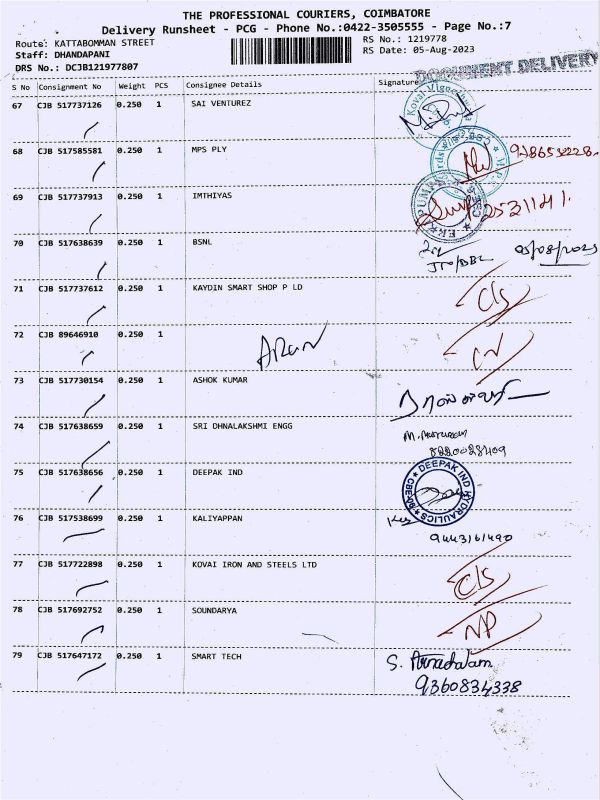 THE PROFESSIONAL COURIERS, COIMBATORE
Delivery Runsheet - PCG - Phone No.:0422-3505555 - Page No.:7
Route: KATTABOMMAN STREET RS No.: 1219778
Staff: DHANDAPANI RS Date: 05-Aug-2023
DRS No.: DCJB121977807
DOCUMENT DELIVERY
S No Consignment No Weight PCS Consignee Details Signature
67 CJB 517737126 0.250 1 SAI VENTUREZ
68 CJB 517585581 0.250 1 MPS PLY
69 CJB 517737913 0.250 1 IMTHIYAS 2531141.
70 CJB 517638639 0.250 1 BSNL 05/08/2023
71 CJB 517737612 0.250 1 KAYDIN SMART SHOP P LD C/S
72 CJB 89646910 0.250 1 ARUN
73 CJB 517730154 0.250 1 ASHOK KUMAR
74 CJB 517638659 0.250 1 SRI DHNALAKSHMI ENGG
8220028409
75 CJB 517638656 0.250 1 DEEPAK IND DEEPAK IND HYDRAULICS
76 CJB 517538699 0.250 1 KALIYAPPAN
9443161490
77 CJB 517722898 0.250 1 KOVAI IRON AND STEELS LTD C/S
78 CJB 517692752 0.250 1 SOUNDARYA NP
79 CJB 517647172 0.250 1 SMART TECH
9360834338